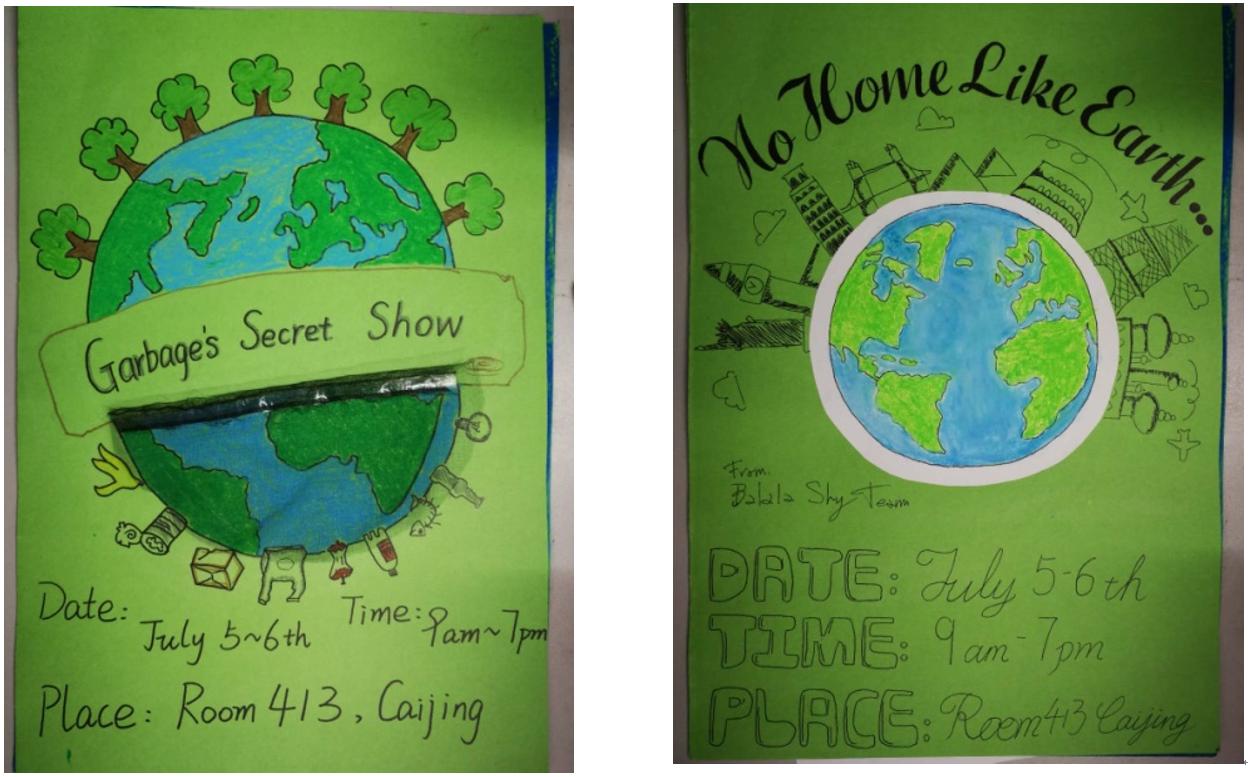 Garbage's Secret Show
Date:
July 5~6th
Time: 9am~7pm
Place: Room 413, Caijing
No Home Like Earth...
From:
Balala Shy-Team
DATE: July 5-6th
TIME: 9am-7pm
PLACE: Room413 Caijing